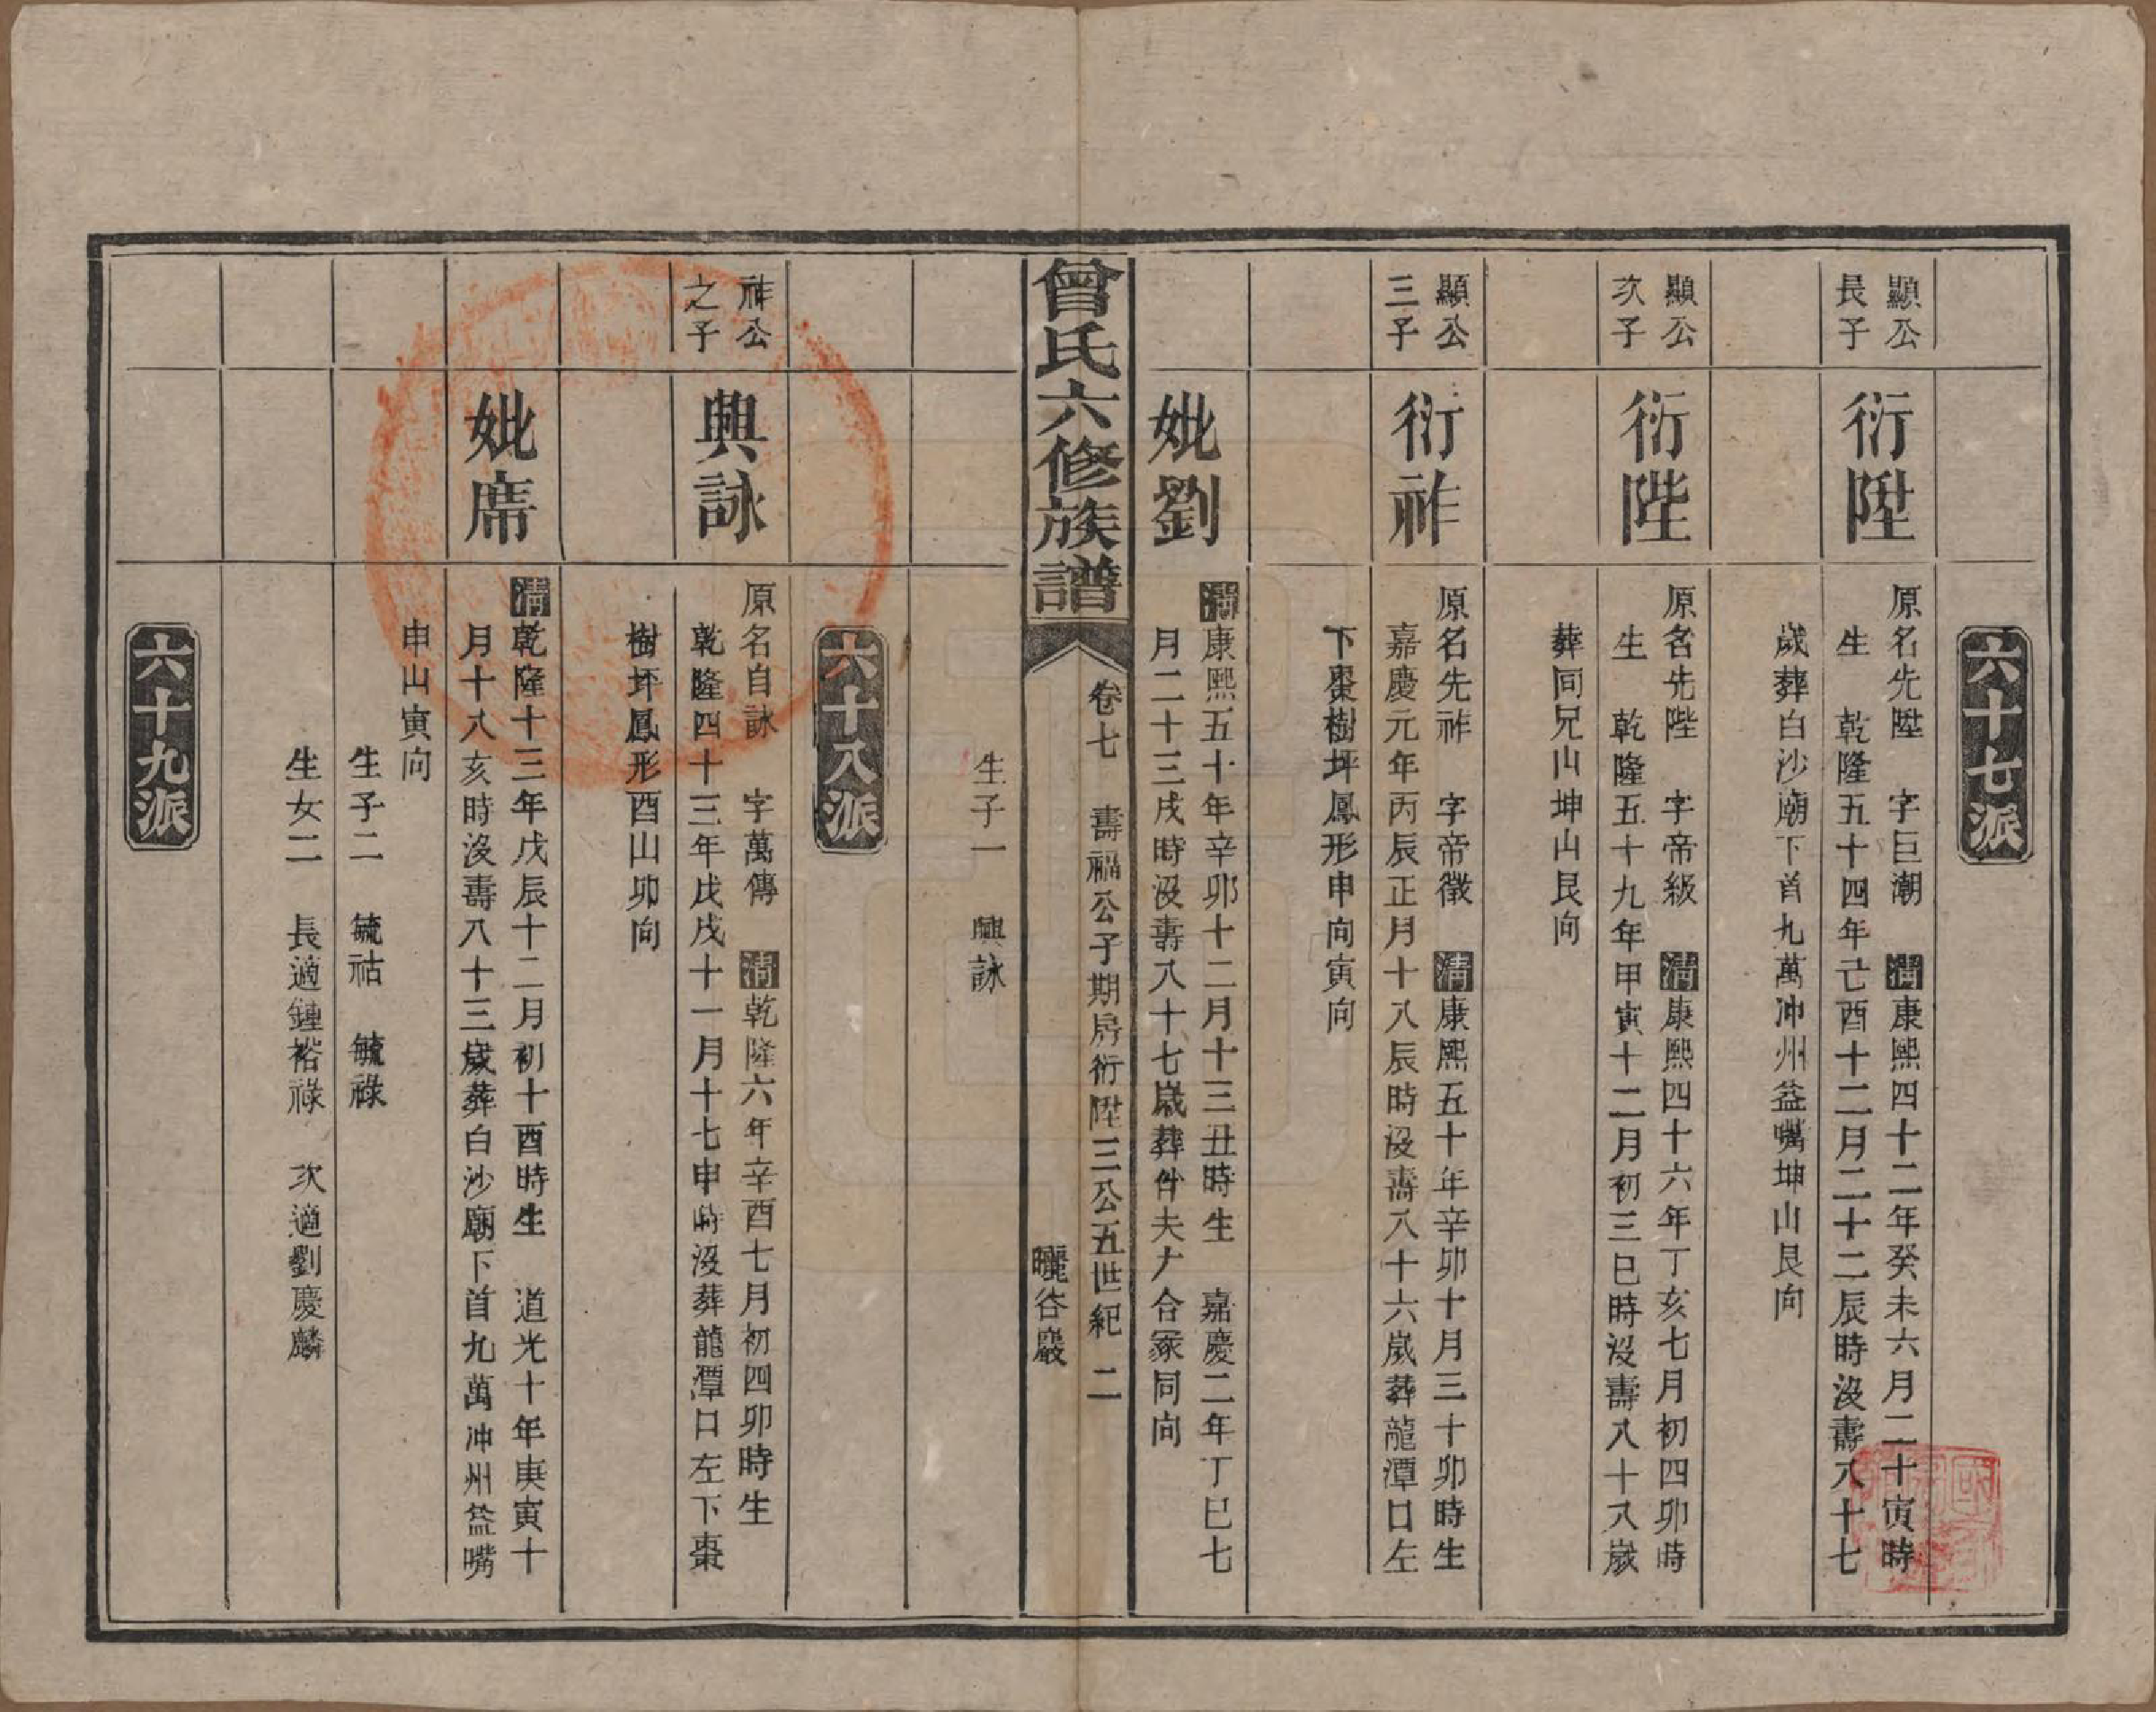 六十七派
顯公
長子
衍陞
原名先陞　字巨潮　清康熙四十二年癸未六月二十寅時
生　乾隆五十四年己酉十二月二十二辰時沒壽八十七
歲葬白沙廟下首九萬冲州益嘴坤山艮向
顯公
次子
衍陛
原名先陛　字帝級　清康熙四十六年丁亥七月初四卯時
生　乾隆五十九年甲寅十二月初三巳時沒壽八十八歲
葬同兄山坤山艮向
顯公
三子
衍祚
原名先祚　字帝徵　清康熙五十年辛卯十月三十卯時生
嘉慶元年丙辰正月十八辰時沒壽八十六歲葬龍潭口左
下棗樹坪鳳形申向寅向
妣劉
清康熙五十年辛卯十二月十三丑時生　嘉慶二年丁巳七
月二十三戌時沒壽八十七歲葬件夫大合冢同向
曾氏六修族譜
卷七　壽福公子期房衍陞三公五世紀　二
曬谷巖
生子一　興詠
六十八派
祚公
之子
興詠
原名自詠　字萬傳　清乾隆六年辛酉七月初四卯時生
乾隆四十三年戊戌十一月十七申時沒葬龍潭口左下棗
樹坪鳳形酉山卯向
妣席
清乾隆十三年戊辰十二月初十酉時生　道光十年庚寅十
月十八亥時沒壽八十三歲葬白沙廟下首九萬冲州益嘴
申山寅向
生子二　毓祜　毓祿
生女二　長適鍾裕祿　次適劉慶麟
六十九派